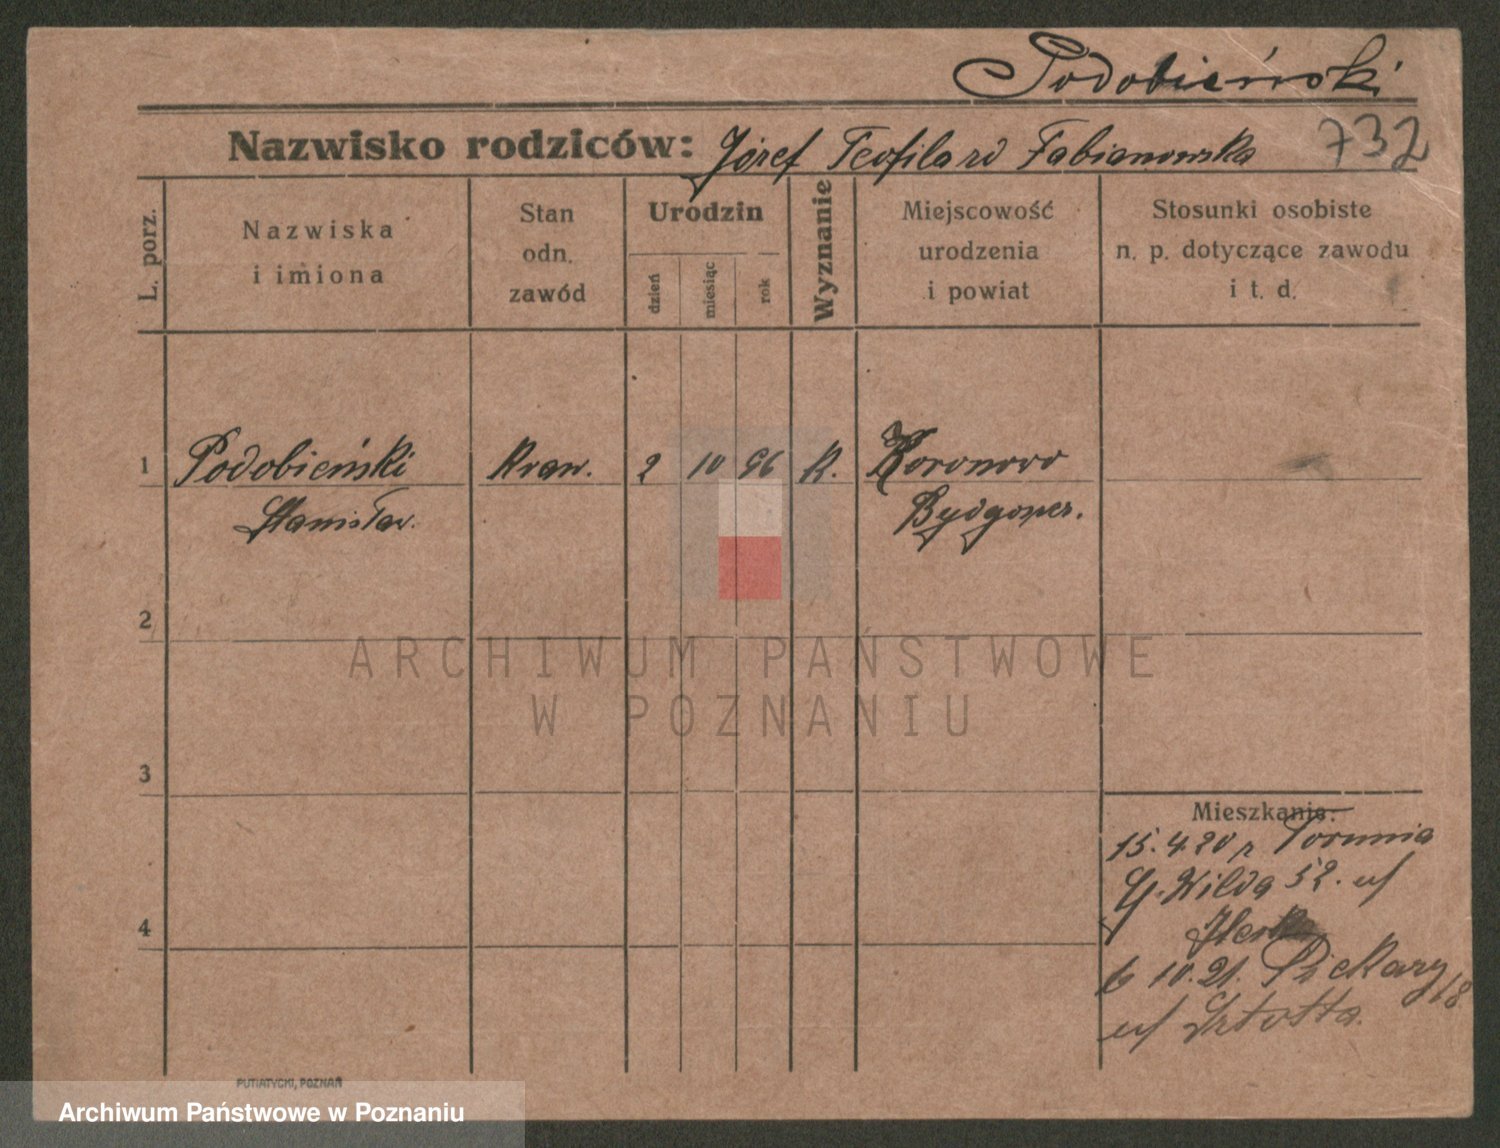 Podobieński
Nazwisko rodziców: Józef Teofila rd Fabianowska 732
L. porz.
Nazwiska
i imiona
Stan
odn.
zawód
Urodzin
dzień
miesiąc
rok
Wyznanie
Miejscowość
urodzenia
i powiat
Stosunki osobiste
n. p. dotyczące zawodu
i t. d.
1 Podobieński kraw. 2 10 96 K. Koronowo
Stanisław. Bydgoszcz.
2
ARCHIWUM PAŃSTWOWE
W POZNANIU
3
Mieszkanie:
15.4.20 z Torunia
G. Wilda 52. u/
4
6 10.21. Piekary 18.
u/
PUTIATYCKI, POZNAŃ
Archiwum Państwowe w Poznaniu